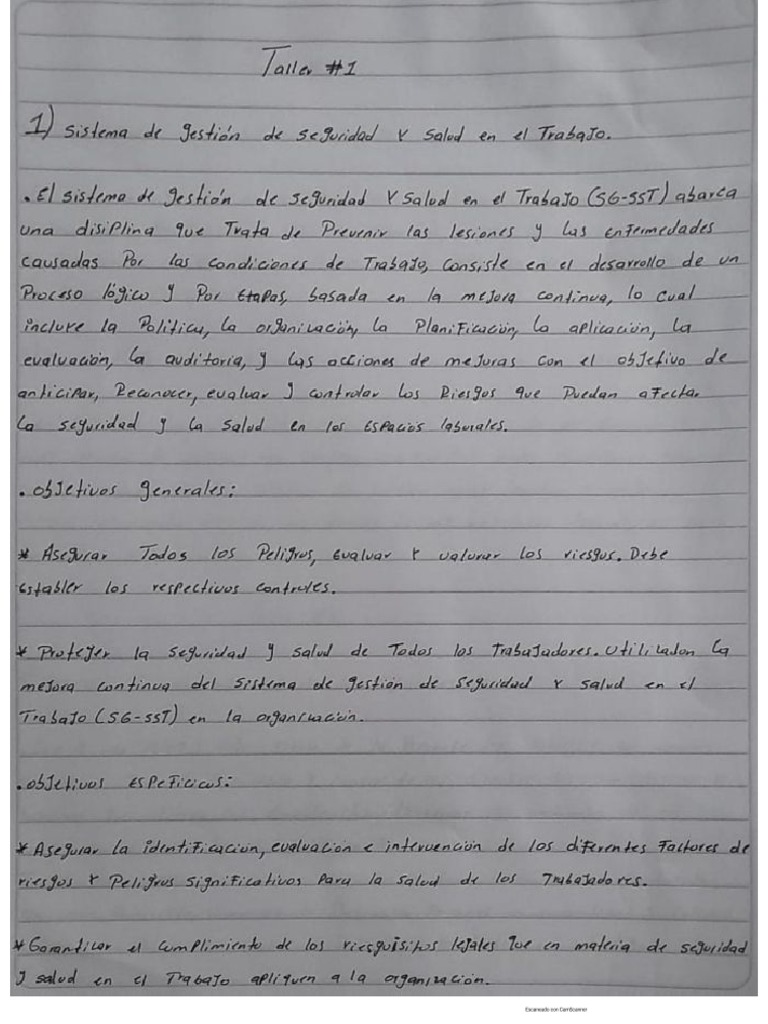 Taller #1
1) Sistema de gestión de seguridad y salud en el Trabajo.
. El sistema de gestión de seguridad y salud en el Trabajo (SG-SST) abarca
una disiplina que Trata de Prevenir las lesiones y las enfermedades
causadas Por las condiciones de Trabajo, consiste en el desarrollo de un
Proceso lógico y Por etapas, basada en la mejora continua, lo cual
incluye la Politica, la organización, la Planificación, la aplicación, la
evaluación, la auditoria, y las acciones de mejoras con el objetivo de
anticipar, Reconocer, evaluar y controlar los Riesgos que Puedan afectar
la seguridad y la salud en los espacios laborales.
. objetivos generales:
* Asegurar Todos los Peligros, evaluar y valorar los riesgos. Debe
establer los respectivos controles.
* Proteger la seguridad y salud de Todos los trabajadores. utilizadon la
mejora continua del sistema de gestión de seguridad y salud en el
Trabajo (SG-SST) en la organización.
. objetivos espeficicos:
* Asegurar la identificación, evaluación e intervención de los diferentes Factores de
riesgos y Peligros significativos Para la salud de los Trabajadores.
* Garantizar el cumplimiento de los riesguisitos legales que en materia de seguridad
y salud en el Trabajo apliquen a la organización.
Escaneado con CamScanner